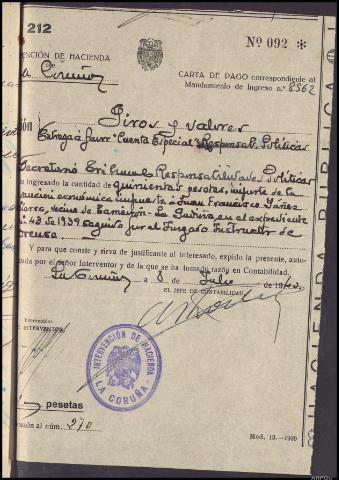 212
Nº 092 *
VENCIÓN DE HACIENDA
DE
La Coruña
CARTA DE PAGO correspondiente al
Mandamiento de Ingreso n.º 8562
Giros y valores
Entrega á favor "Cuenta Especial" Responsab. Políticas
Secretario Tribunal Responsabilidades Políticas
ha ingresado la cantidad de quinientas pesetas, importe de la
sanción económica impuesta á Juan Francisco Yáñez
vecino de La Gudiña, en el expediente
43 de 1939 seguido por el Juzgado Instructor de
Orense.
Y para que conste y sirva de justificante al interesado, expido la presente, auto-
zada por el señor Interventor y de la que se ha tomado razón en Contabilidad.
La Coruña a 8 de Julio de 1940
EL JEFE DE CONTABILIDAD
Intervenido:
INTERVENTOR,
INTERVENCIÓN DE HACIENDA
LA CORUÑA
pesetas
270
Mod. 13.-1939
HACIENDA PÚBLICA